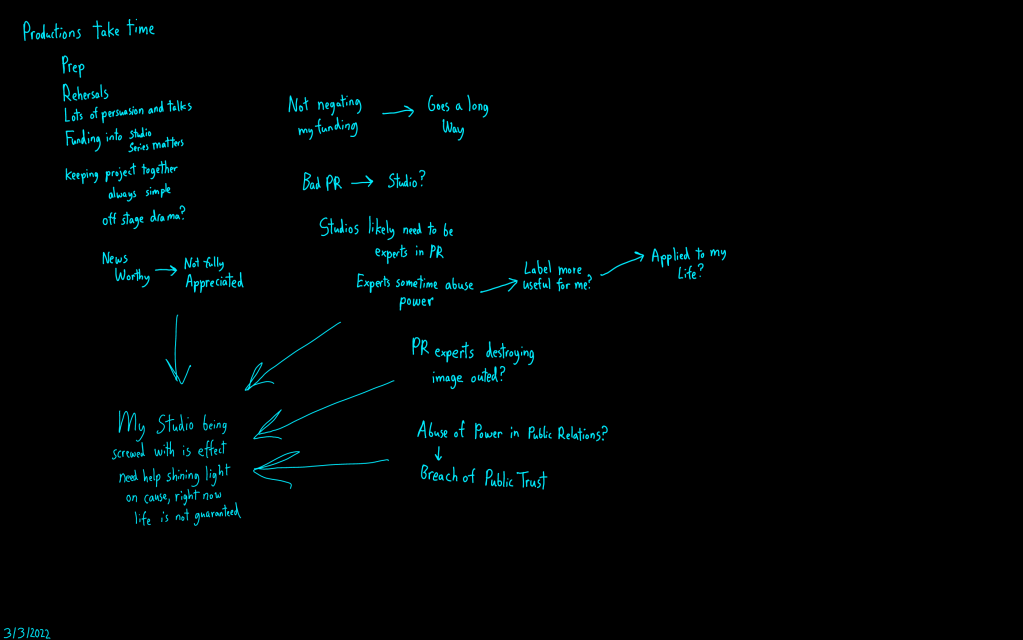 Productions take time
Prep
Rehersals
Lots of persuasion and talks
Funding into studio
Series matters
Keeping project together
always simple
off stage drama?
News
Worthy → Not fully
Appreciated
Not negating
my funding → Goes a long
Way
Bad PR → Studio?
Studios likely need to be
experts in PR
Experts sometime abuse
power → Label more
useful for me? → Applied to my
Life?
PR experts destroying
image outed?
Abuse of Power in Public Relations?
↓
Breach of Public Trust
My Studio being
screwed with is effect
need help shining light
on cause, right now
life is not guaranteed
3/3/2022